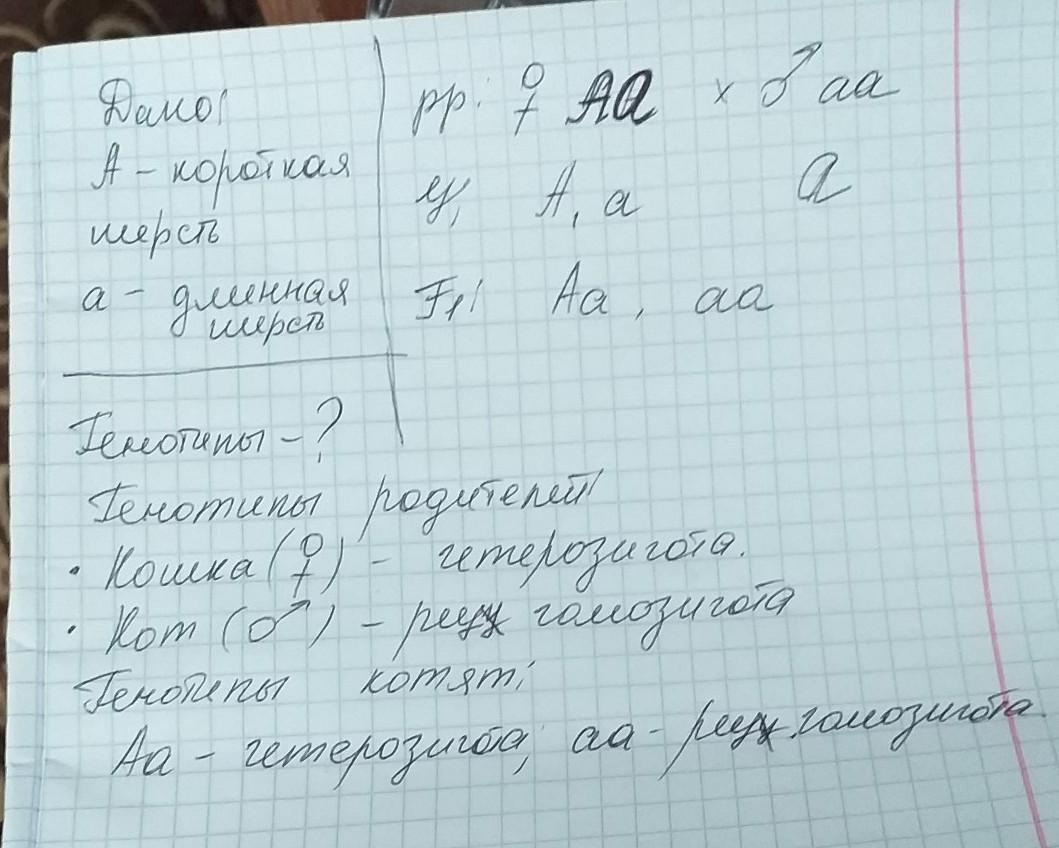 Дано:
А - короткая
шерсть
а - длинная
шерсть
Генотипы - ?
рр: ♀ Аа × ♂ аа
А, а а
F1: Аа, аа
Генотипы родителей:
• Кошка (♀) - гетерозигота.
• Кот (♂) - рец гомозигота
Генотипы котят:
Аа - гетерозигота; аа - рец. гомозигота